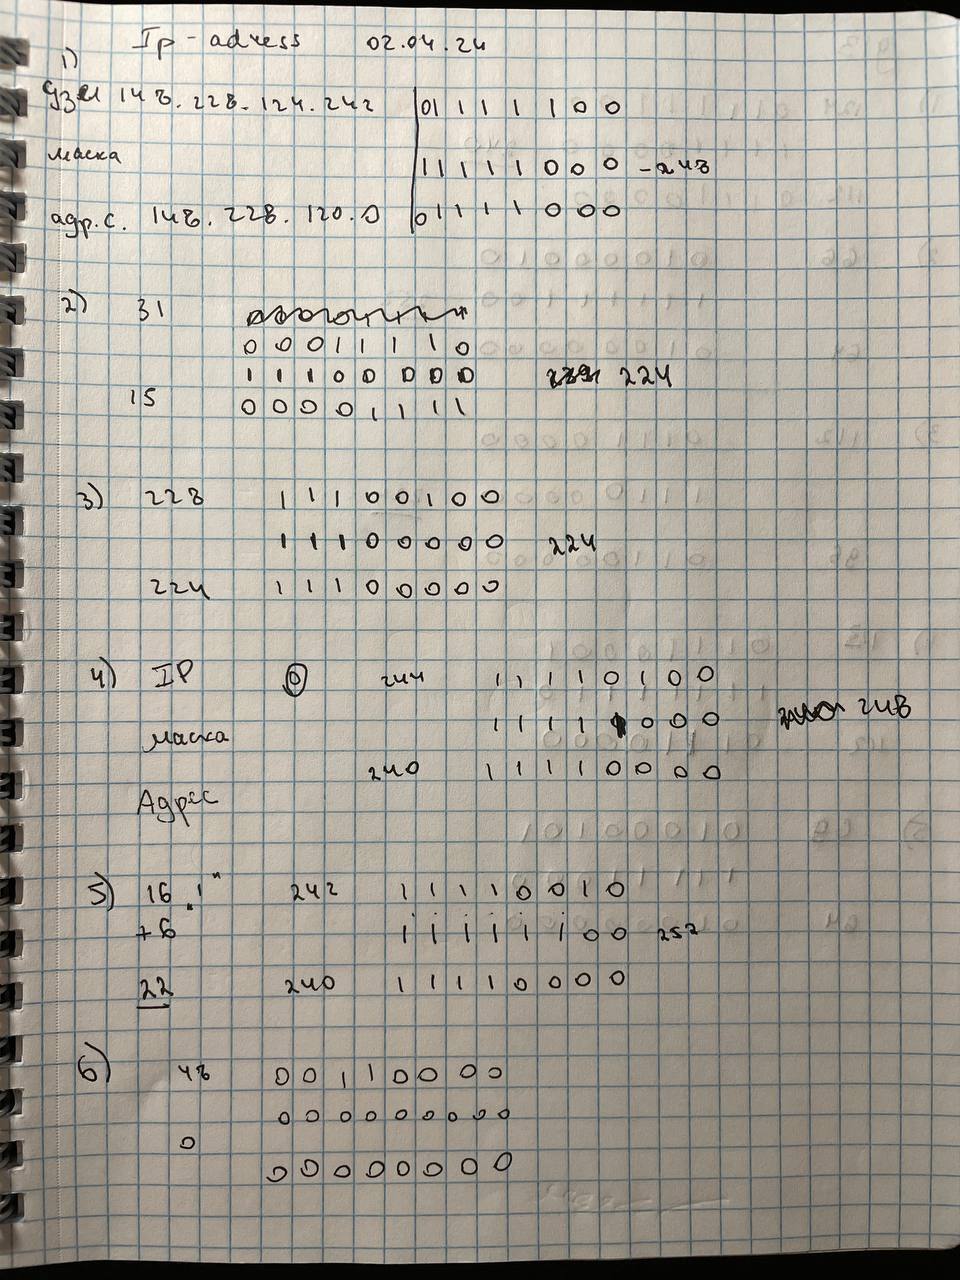 Ip-adress 02.04.24
1)
узел 148.228.124.242 01111100
маска 11111000 - 248
адр.с. 148.228.120.0 01111000
2) 31
00011110
11100000 224
15 00001111
3) 228 11100100
11100000 224
224 11100000
4) IP 244 11110100
маска 11111000 248
240 11110000
Адрес
5) 16 "1" 242 11110010
+6 11111100 252
22 240 11110000
6) 48 00110000
00000000
0
00000000